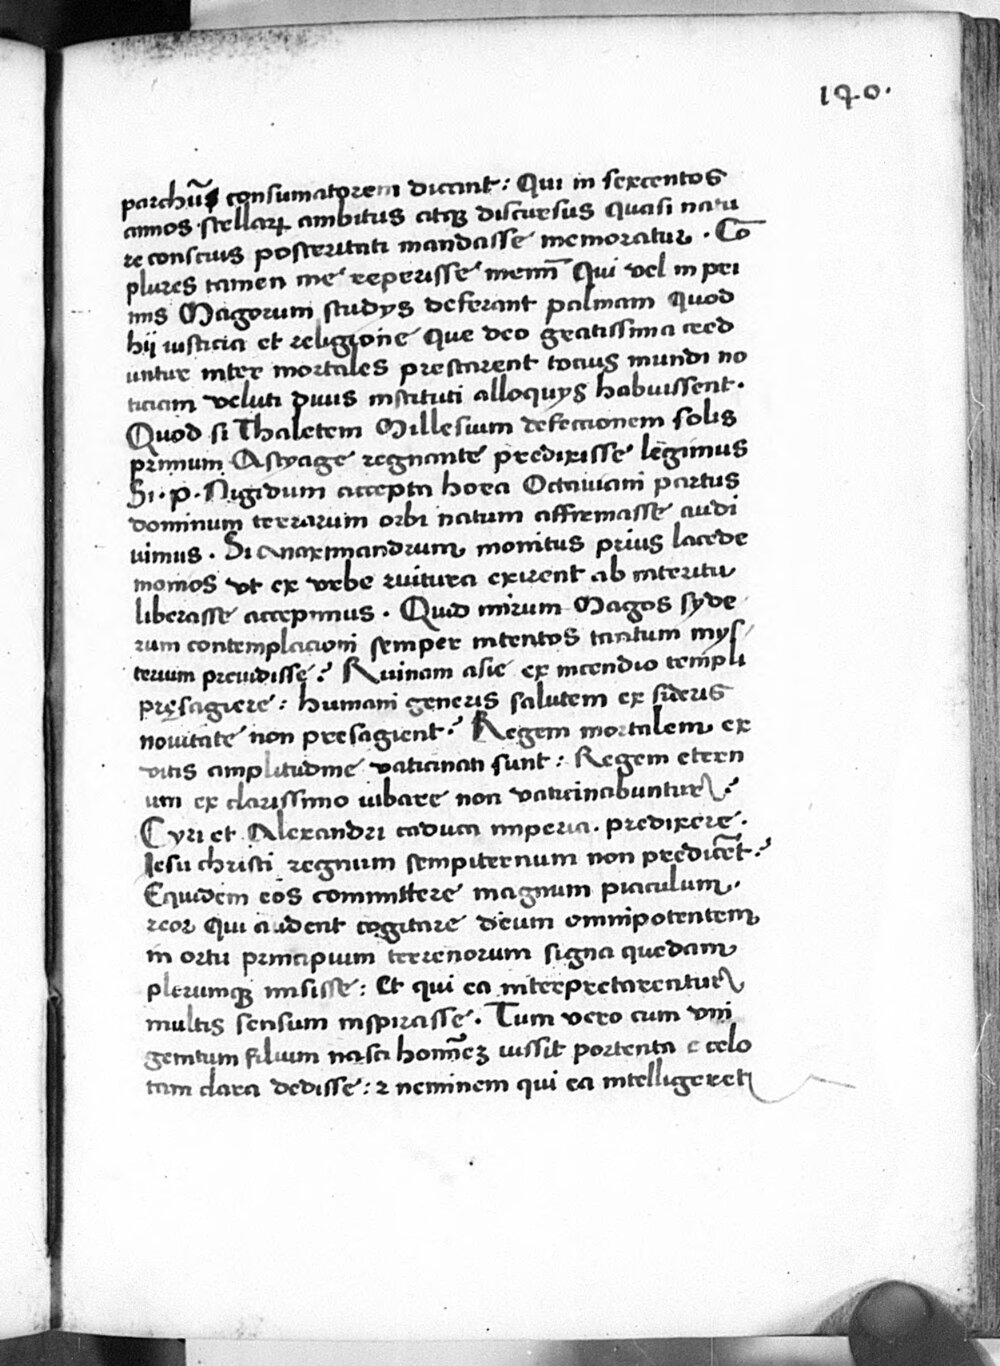 140.
parchũs consumatorem dicant: Qui in sexcentos
annos stellarꝝ ambitus atqꝫ discursus quasi natu
re conscius posteritati mandasse memoratur. Cō
plures tamen me reperisse memī Qui vel in pri
mis Magorum studijs deferant palmam Quod
hij iusticia et religione Que deo gratissima cred
untur inter mortales prestarent tocius mundi no
ticiam veluti diuis instituti alloquijs habuissent.
Quod si Thaletem Millesium defectionem solis
primum Astyage regnante predixisse legimus
Si. P. Nigidum accepta hora Octauiani partus
dominum terrarum orbi natum affirmasse audi
uimus. Si anaximandrum monitus prius lacede
monios vt ex vrbe ruitura exirent ab interitu
liberasse accepimus. Quid mirum Magos syde
rum contemplacioni semper intentos tantum mys
terium preuidisse? Ruinam asie ex incendio templi
pręsagiere: humani generis salutem ex sideris
nouitate non presagient? Regem mortalem ex
vitis amplitudine vaticinati sunt: Regem etern
um ex clarissimo iubare non vaticinabuntur?
Cyri et Alexandri caduca imperia. predixere.
Iesu christi regnum sempiternum non predicēt?
Equidem eos committere magnum piaculum.
reor Qui audent cogitare deum omnipotentem
in ortu principium terrenorum signa quedam
plerumqꝫ misisse: Et qui ea interpretarentur
multis sensum inspirasse. Tum vero cum vni
genitum filium nasci homīeꝫ iussit portenta e celo
tam clara dedisse: ⁊ neminem qui ea intelligeret